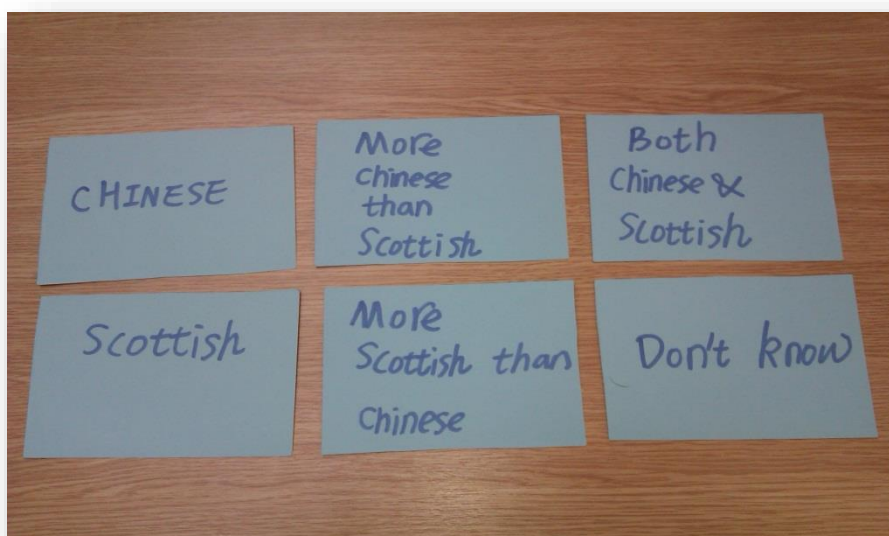 CHINESE
More
Chinese
than
Scottish
Both
Chinese &
Scottish
Scottish
More
Scottish than
Chinese
Don't know